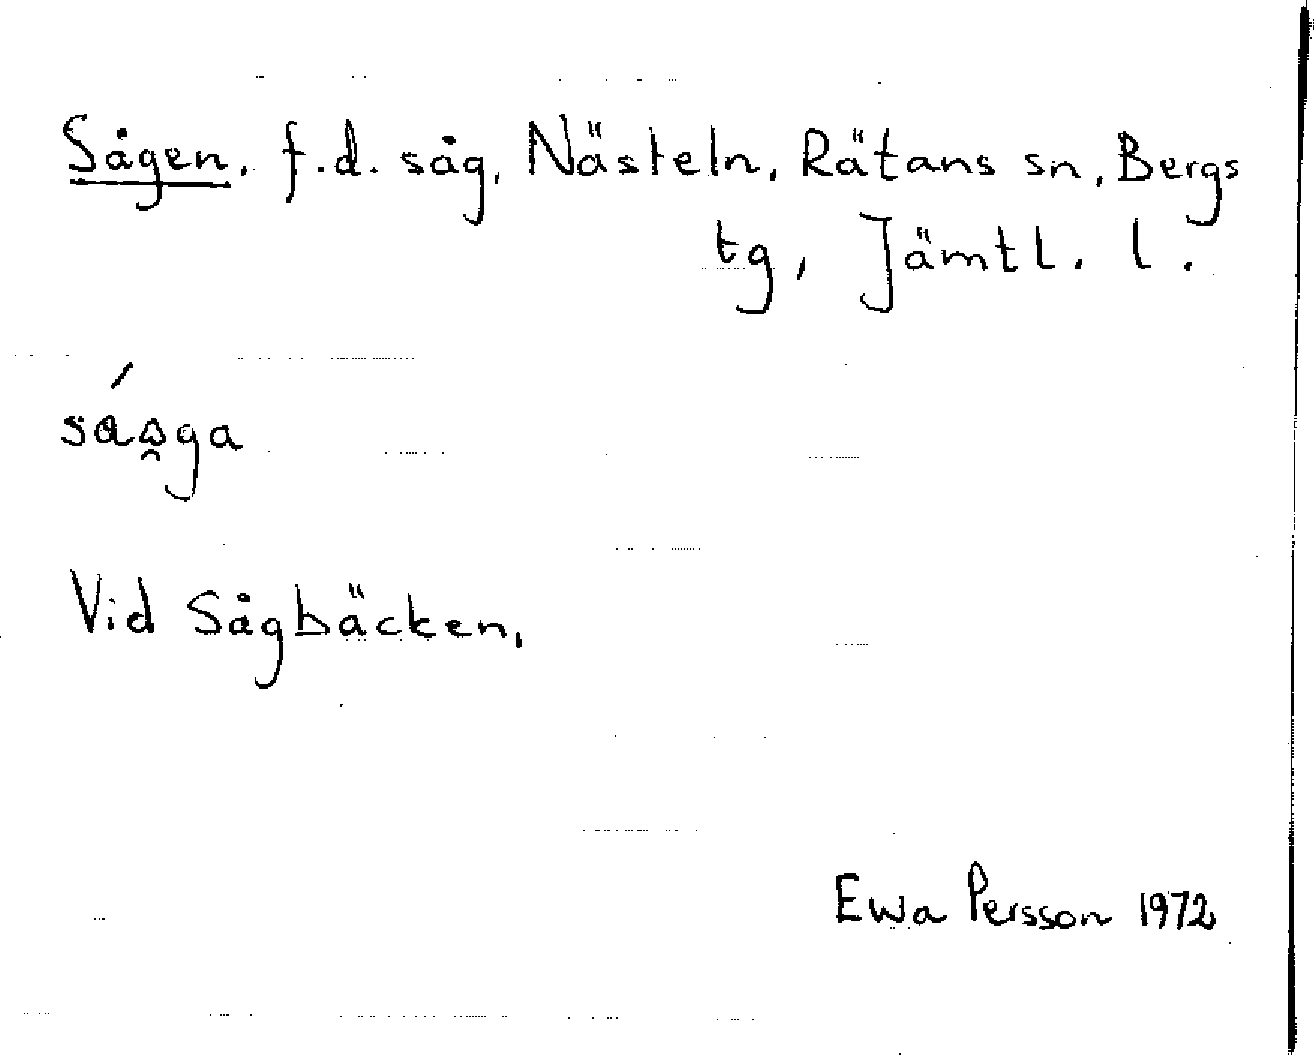 Sågen, f.d. såg, Nästeln, Rätans sn, Bergs
tg, Jämtl. l.
Vid Sågbäcken,
Ewa Persson 1972